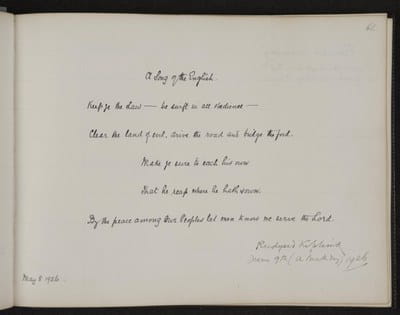 A Song of the English.
Keep ye the Law — be swift in all obedience —
Clear the land of evil, drive the road and bridge the ford.
Make ye sure to each his own
That he reap where he hath sown.
By the peace among Our Peoples let men know we serve the Lord.
Rudyard Kipling
June 9th (a Monday) 1926
May 8 1926.